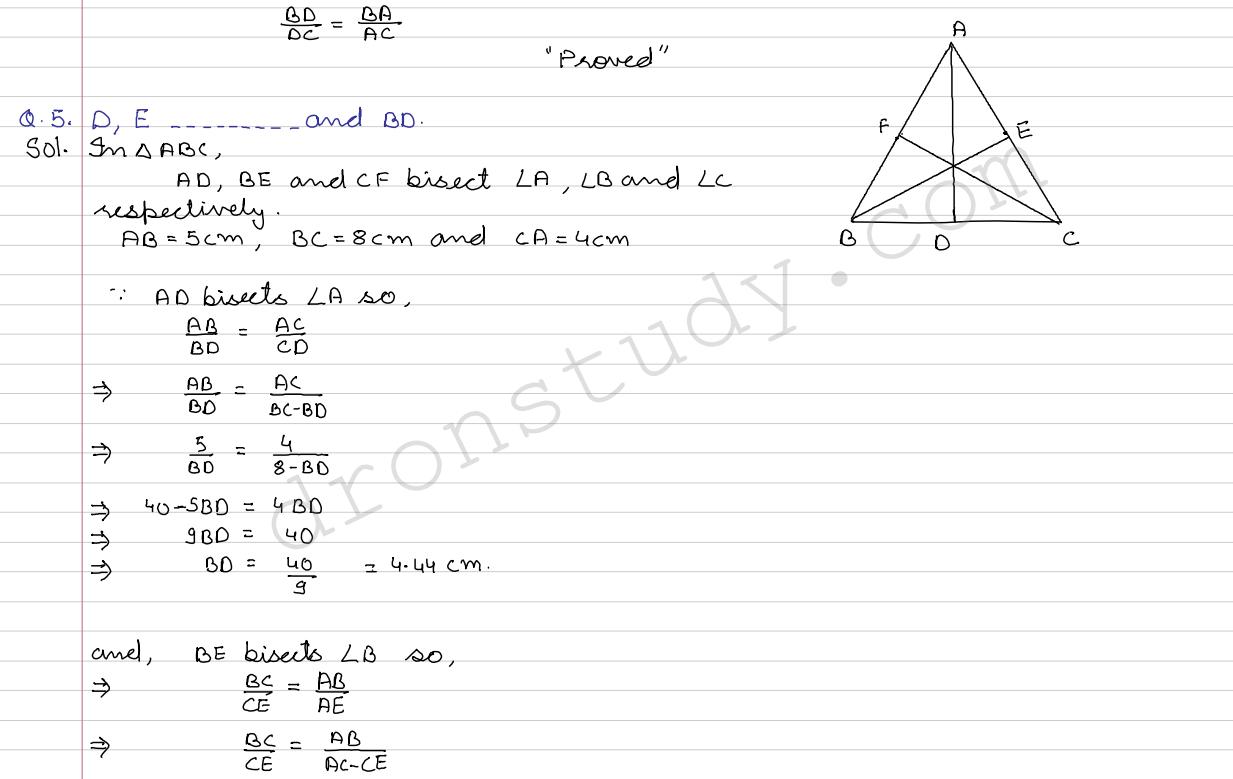 BD/DC = BA/AC
"Proved"
Q.5. D, E --------- and BD.
Sol. In △ABC,
AD, BE and CF bisect ∠A, ∠B and ∠C
respectively.
AB = 5cm, BC = 8cm and CA = 4cm
∵ AD bisects ∠A so,
AB/BD = AC/CD
⇒ AB/BD = AC/BC-BD
⇒ 5/BD = 4/8-BD
⇒ 40-5BD = 4BD
⇒ 9BD = 40
⇒ BD = 40/9 = 4.44 cm.
and, BE bisects ∠B so,
⇒ BC/CE = AB/AE
⇒ BC/CE = AB/AC-CE
A
F
E
B
D
C
dronstudy.com